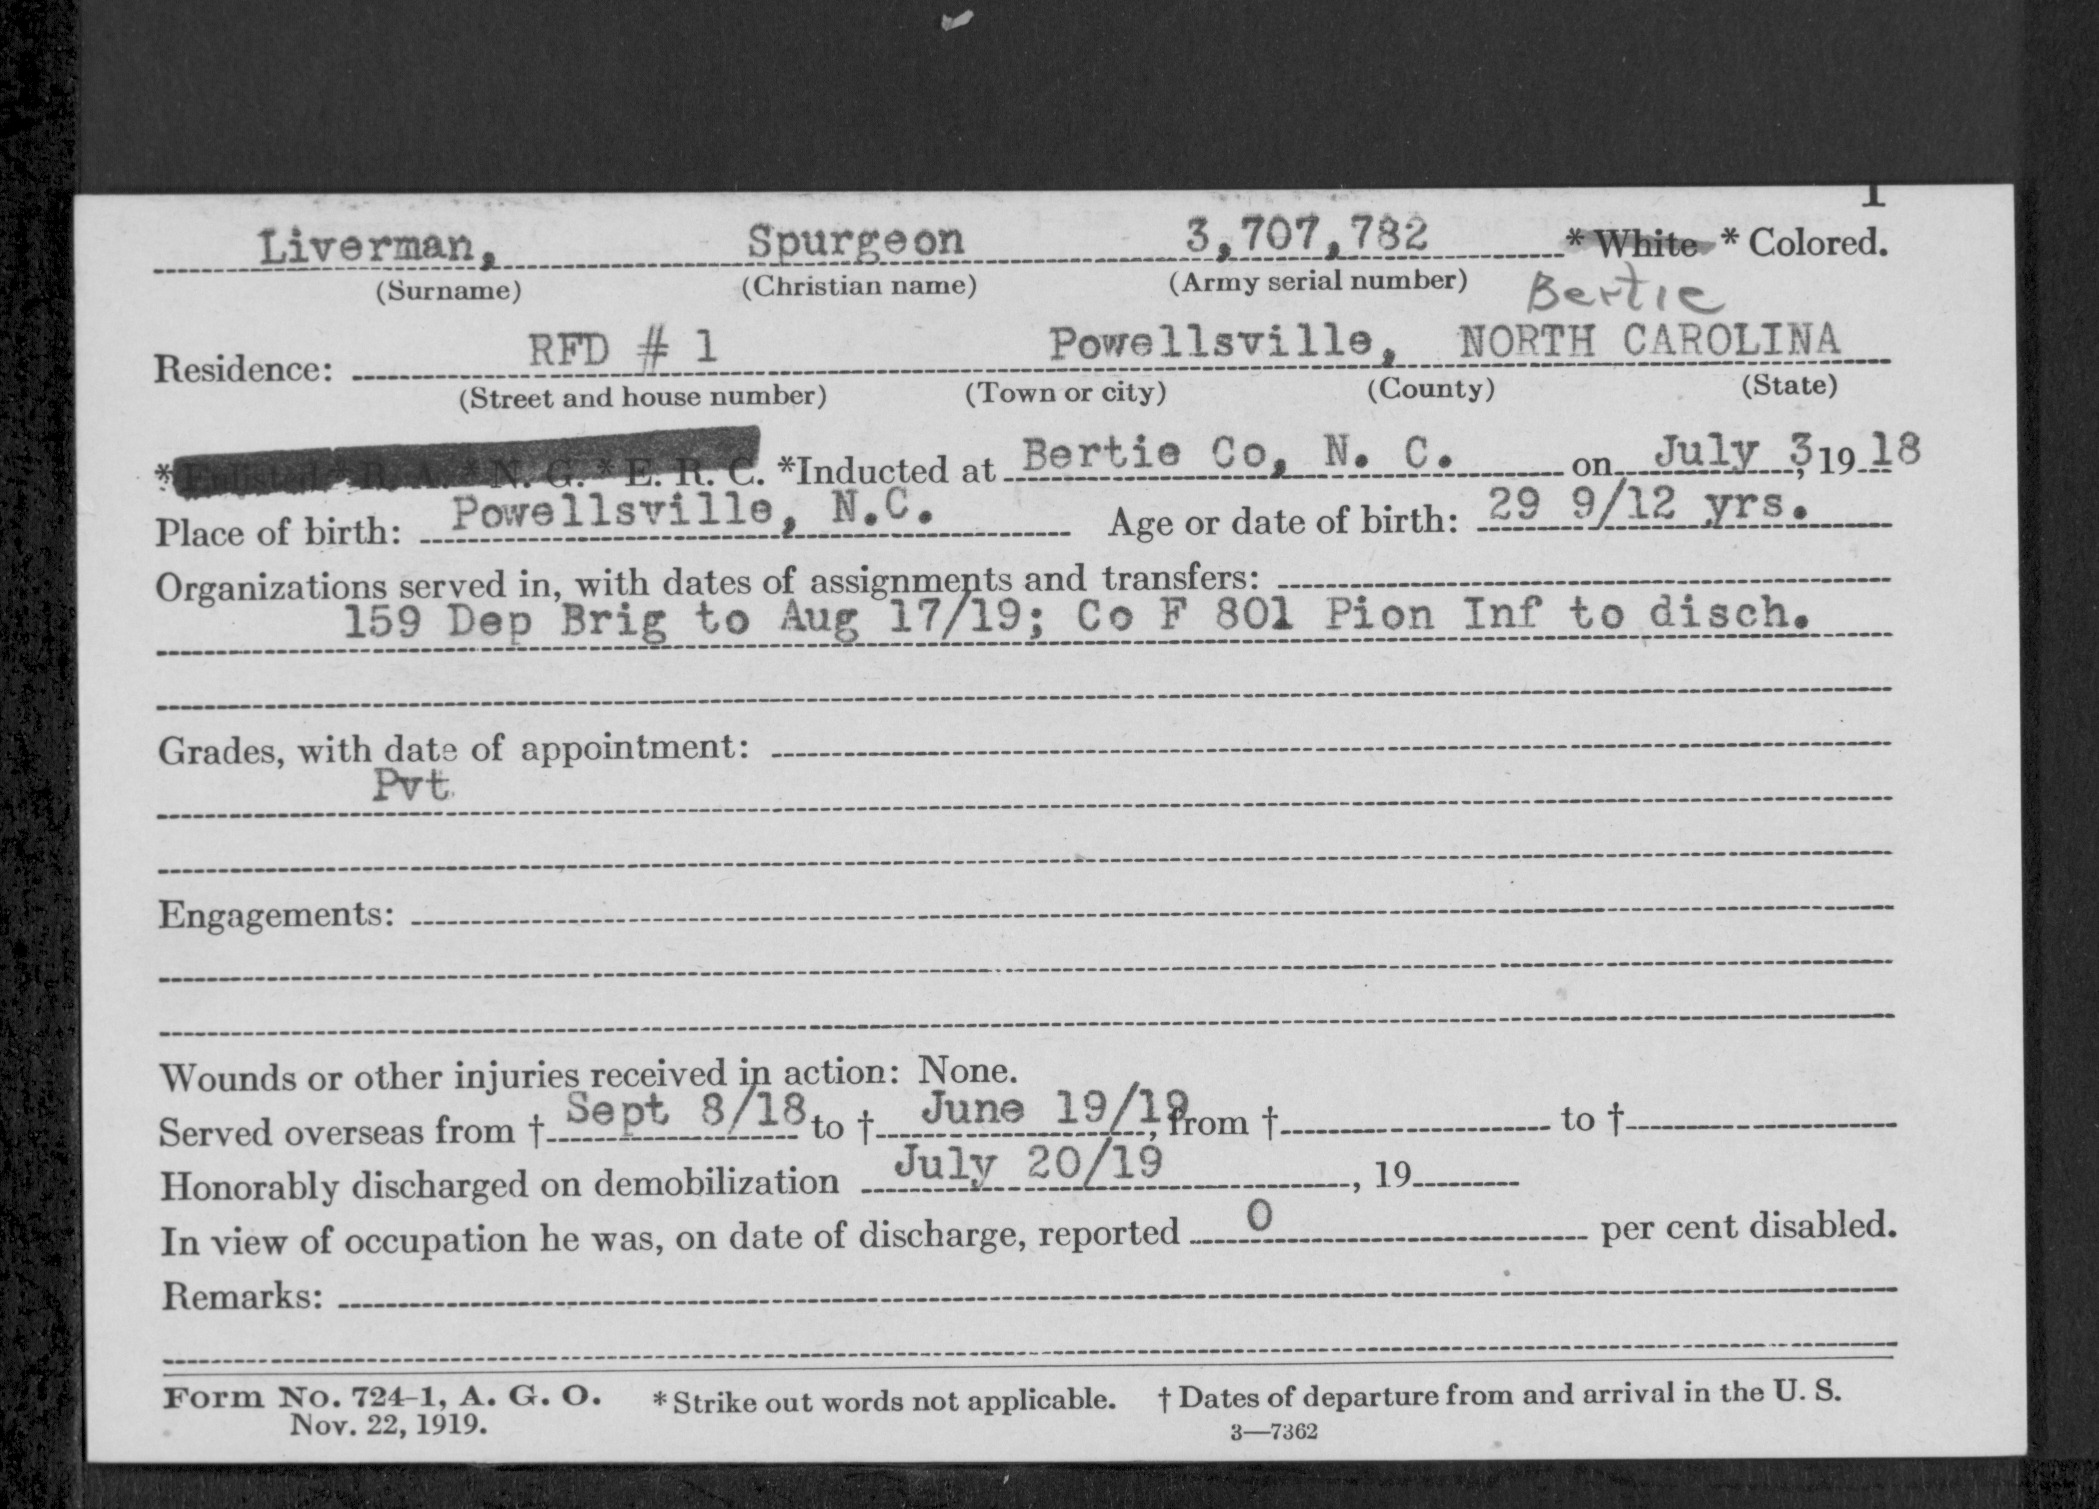 1
Liverman, Spurgeon 3,707,782 * White * Colored.
(Surname) (Christian name) (Army serial number) Bertie
Residence: RFD # 1 Powellsville, NORTH CAROLINA
(Street and house number) (Town or city) (County) (State)
* Enlisted * R. A. * N. G. * E. R. C. *Inducted at Bertie Co, N. C. on July 3, 19 18
Place of birth: Powellsville, N.C. Age or date of birth: 29 9/12 yrs.
Organizations served in, with dates of assignments and transfers:
159 Dep Brig to Aug 17/19; Co F 801 Pion Inf to disch.
Grades, with date of appointment:
Pvt
Engagements:
Wounds or other injuries received in action: None.
Served overseas from † Sept 8/18 to † June 19/19, from † to †
Honorably discharged on demobilization July 20/19, 19
In view of occupation he was, on date of discharge, reported 0 per cent disabled.
Remarks:
Form No. 724-1, A. G. O. * Strike out words not applicable. † Dates of departure from and arrival in the U. S.
Nov. 22, 1919. 3—7362